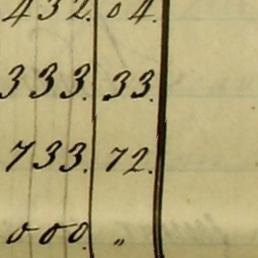 432. 04.
333. 33.
733. 72.
000. „